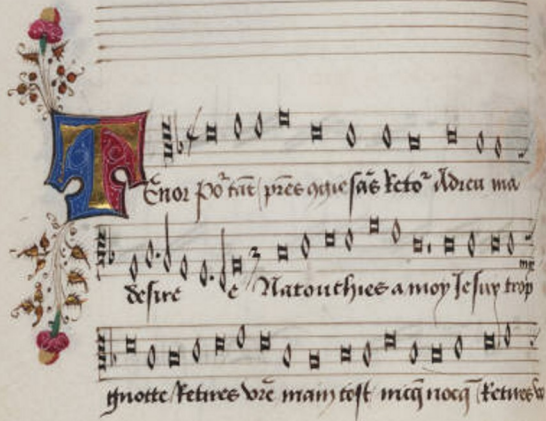 Tenor Po² tāt / prēs ꝯgie sās Reto² Adieu ma
desire e Natouchies a moy Je suy trop
mignotte / Retires vr̄e main tost mēq̄ nocq̄ / Retires v